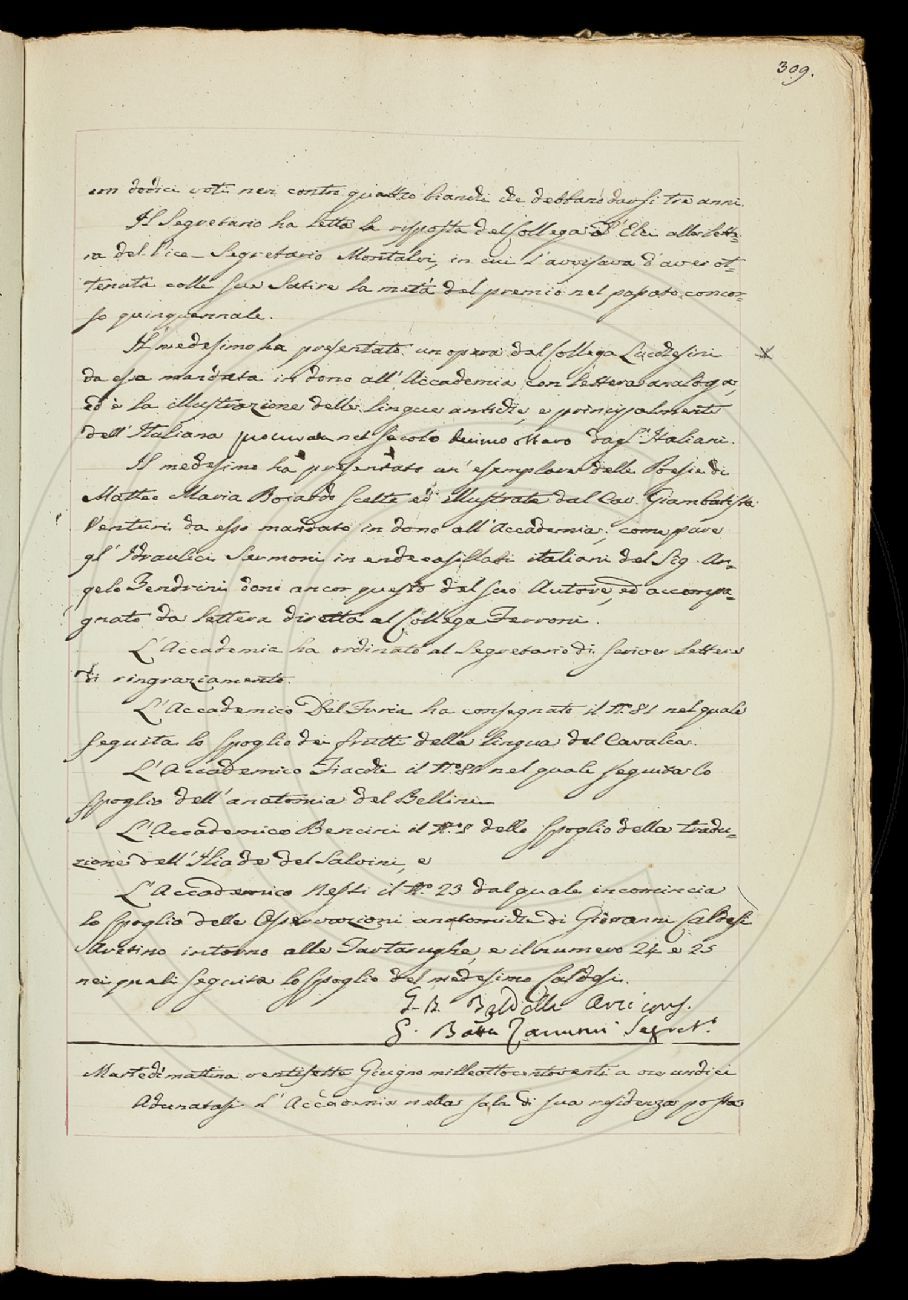 309.
con dodici voti neri contro quattro bianchi che debbano darsi tre anni.
Il Segretario ha letta la risposta del Collega D'Elci alla lette-
ra del Vice-Segretario Montalvi, in cui l'avvisava d'aver ot-
tenuta colle sue Satire la metà del premio nel passato concor-
so quinquennale.
Il medesimo ha presentato un opera del Collega Lucchesini
da esso mandata in dono all'Accademia con lettera analoga,
ed è la illustrazione delle lingue antiche, e principalmente
dell'Italiana procurata nel secolo decimo ottavo dagl'Italiani.
Il medesimo ha presentato un'esemplare delle Poesie di
Matteo Maria Boiardo scelte ed illustrate dal Cav. Giambatista
Venturi da esso mandato in dono all'Accademia, come pure
gl'Idraulici Sermoni in endecasillabi italiani del Sig. An-
gelo Zendrini doni ancor questo del suo Autore, ed accompa-
gnato da lettera diretta al Collega Ferroni.
L'Accademia ha ordinato al Segretario di scriver lettere
di ringraziamento.
L'Accademico Del Furia ha consegnato il N.º 81 nel quale
seguita lo spoglio dei frutti della lingua del Cavalca.
L'Accademico Fiacchi il N.º 80 nel quale seguita lo
spoglio dell'anatomia del Bellini
L'Accademico Bencini il N.º 8 dello spoglio della tradu-
zione dell'Iliade del Salvini, e
L'Accademico Nesti il N.º 23 dal quale incomincia
lo spoglio delle Osservazioni anatomiche di Giovanni Caldesi
Aretino intorno alle Tartarughe, e il numero 24 e 25
nei quali seguita lo spoglio del medesimo Caldesi.
G. B. Baldelli Arcicons.
G. Batta Zannoni Segret.º
Martedì mattina ventisette Giugno milleottocentoventi a ore undici
Adunatasi l'Accademia nella sala di sua residenza posta